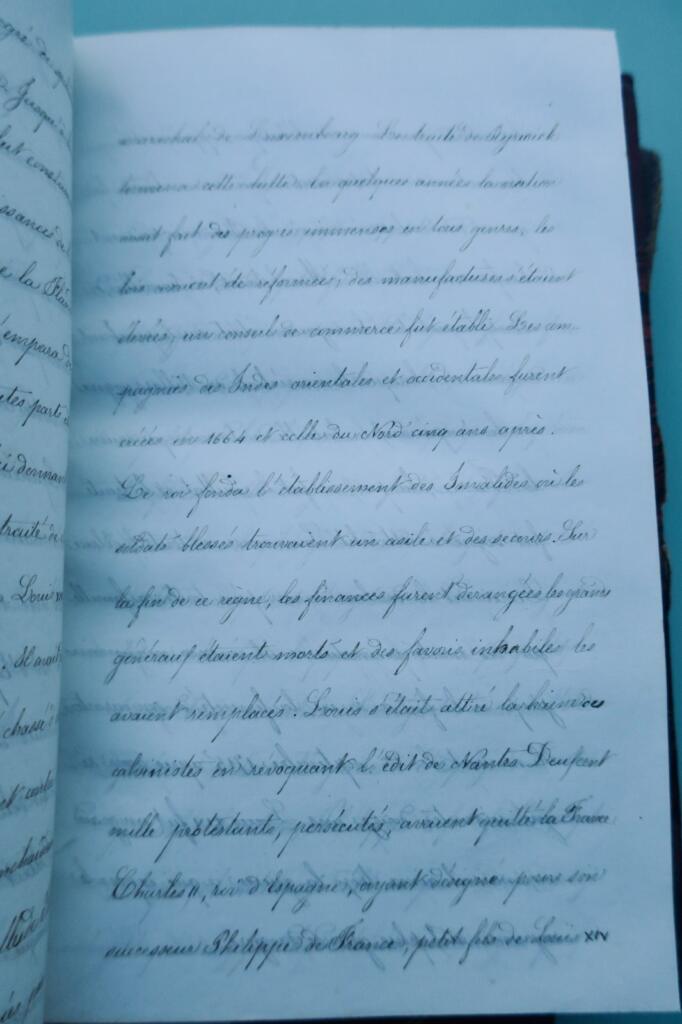 maréchal de Luxembourg Le traité de Ryswick
termina cette lutte. En quelques années la nation
avait fait des progrès immenses en tous genres, les
lois avaient été réformées, des manufactures s'étaient
élevées, un conseil de commerce fut établi. Les com-
pagnies des Indes orientales et occidentales furent
créées en 1664 et celle du Nord cinq ans après.
Le roi fonda l'établissement des Invalides où les
soldats blessés trouvaient un asile et des secours. Sur
la fin de ce règne, les finances furent dérangées les grands
généraux étaient morts et des favoris inhabiles les
avaient remplacés. Louis s'était attiré la haine des
calvinistes en révoquant l'édit de Nantes. Deux cent
mille protestants, persécutés, avaient quitté la France
Charles II, roi d'Espagne, ayant désigné pour son
successeur Philippe de France, petit fils de Louis XIV